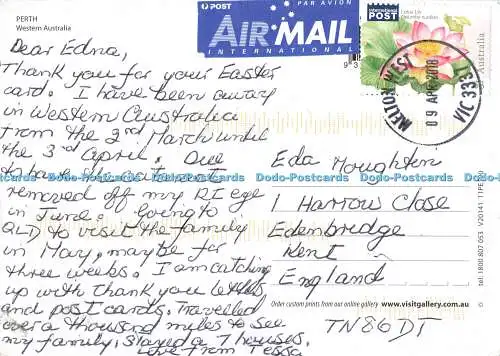 PERTH
Western Australia
POST
AIR MAIL
INTERNATIONAL
International
POST
Australia
MELTON WEST
09 APR 2018
VIC 3337
Dear Edna,
Thank you for your Easter
card. I have been away
in Western Australia
from the 2nd March until
the 3rd April. Due
to have the cataract
removed off my R eye
in June. Going to
QLD to visit the family
in May, maybe for
three weeks. I am catching
up with thank you letters
and post cards. Travelled
over a thousand miles to see
my family, stayed a 7 houses.
Love from Tessa
Eda Moughton
1 Harrow Close
Edenbridge
Kent
England
TN86DT
Order custom prints from our online gallery www.visitgallery.com.au
tel: 1800 807 053 V20141
Dodo-Postcards Dodo-Postcards Dodo-Postcards Dodo-Postcards Dodo-Postcards